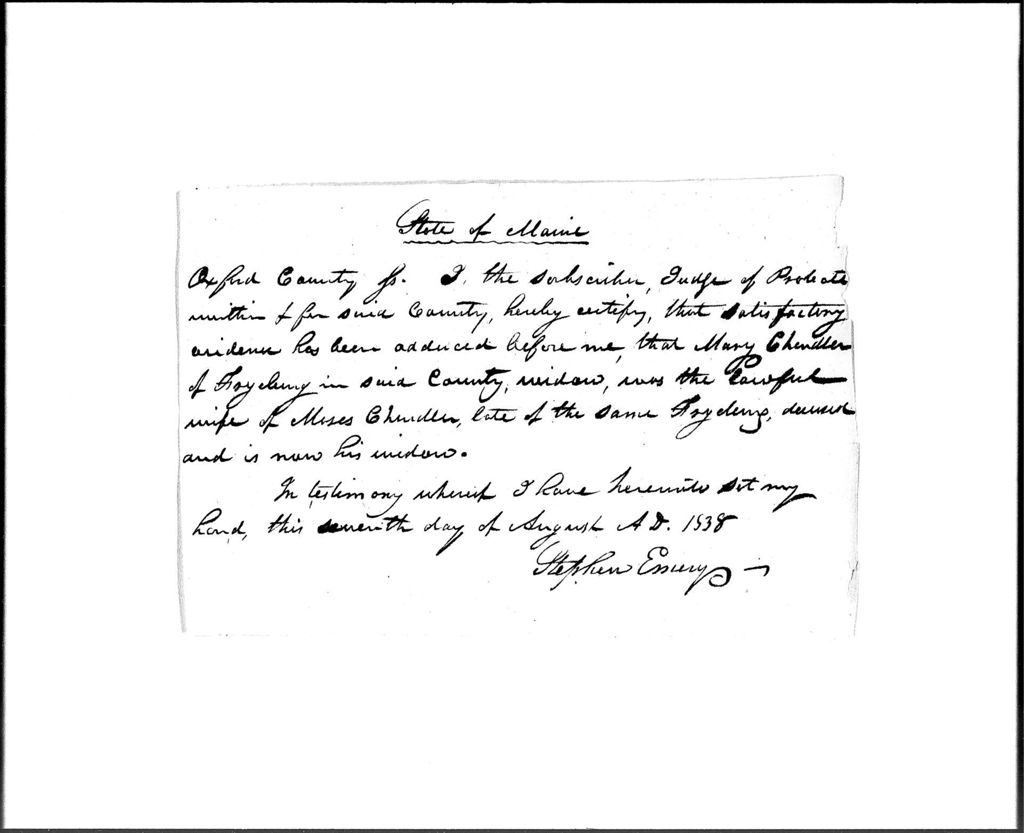 State of Maine
Oxford County Ss. I, the subscriber, Judge of Probate
within & for said County, hereby certify, that satisfactory
evidence has been adduced before me, that Mary Chandler
of Fryeburg in said County, widow, was the lawful
wife of Moses Chandler, late of the same Fryeburg, deceased
and is now his widow.
In testimony whereof I have hereunto set my
hand, this seventh day of August A.D. 1838
Stephen Emery